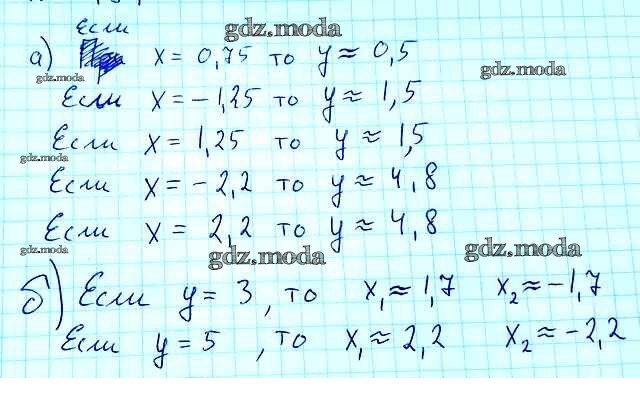 Если gdz.moda
а) x = 0,75 то y ≈ 0,5
gdz.moda gdz.moda
Если x = -1,25 то y ≈ 1,5
Если x = 1,25 то y ≈ 1,5
gdz.moda
Если x = -2,2 то y ≈ 4,8
Если x = 2,2 то y ≈ 4,8
gdz.moda gdz.moda gdz.moda
б) Если y = 3, то x₁ ≈ 1,7 x₂ ≈ -1,7
Если y = 5, то x₁ ≈ 2,2 x₂ ≈ -2,2